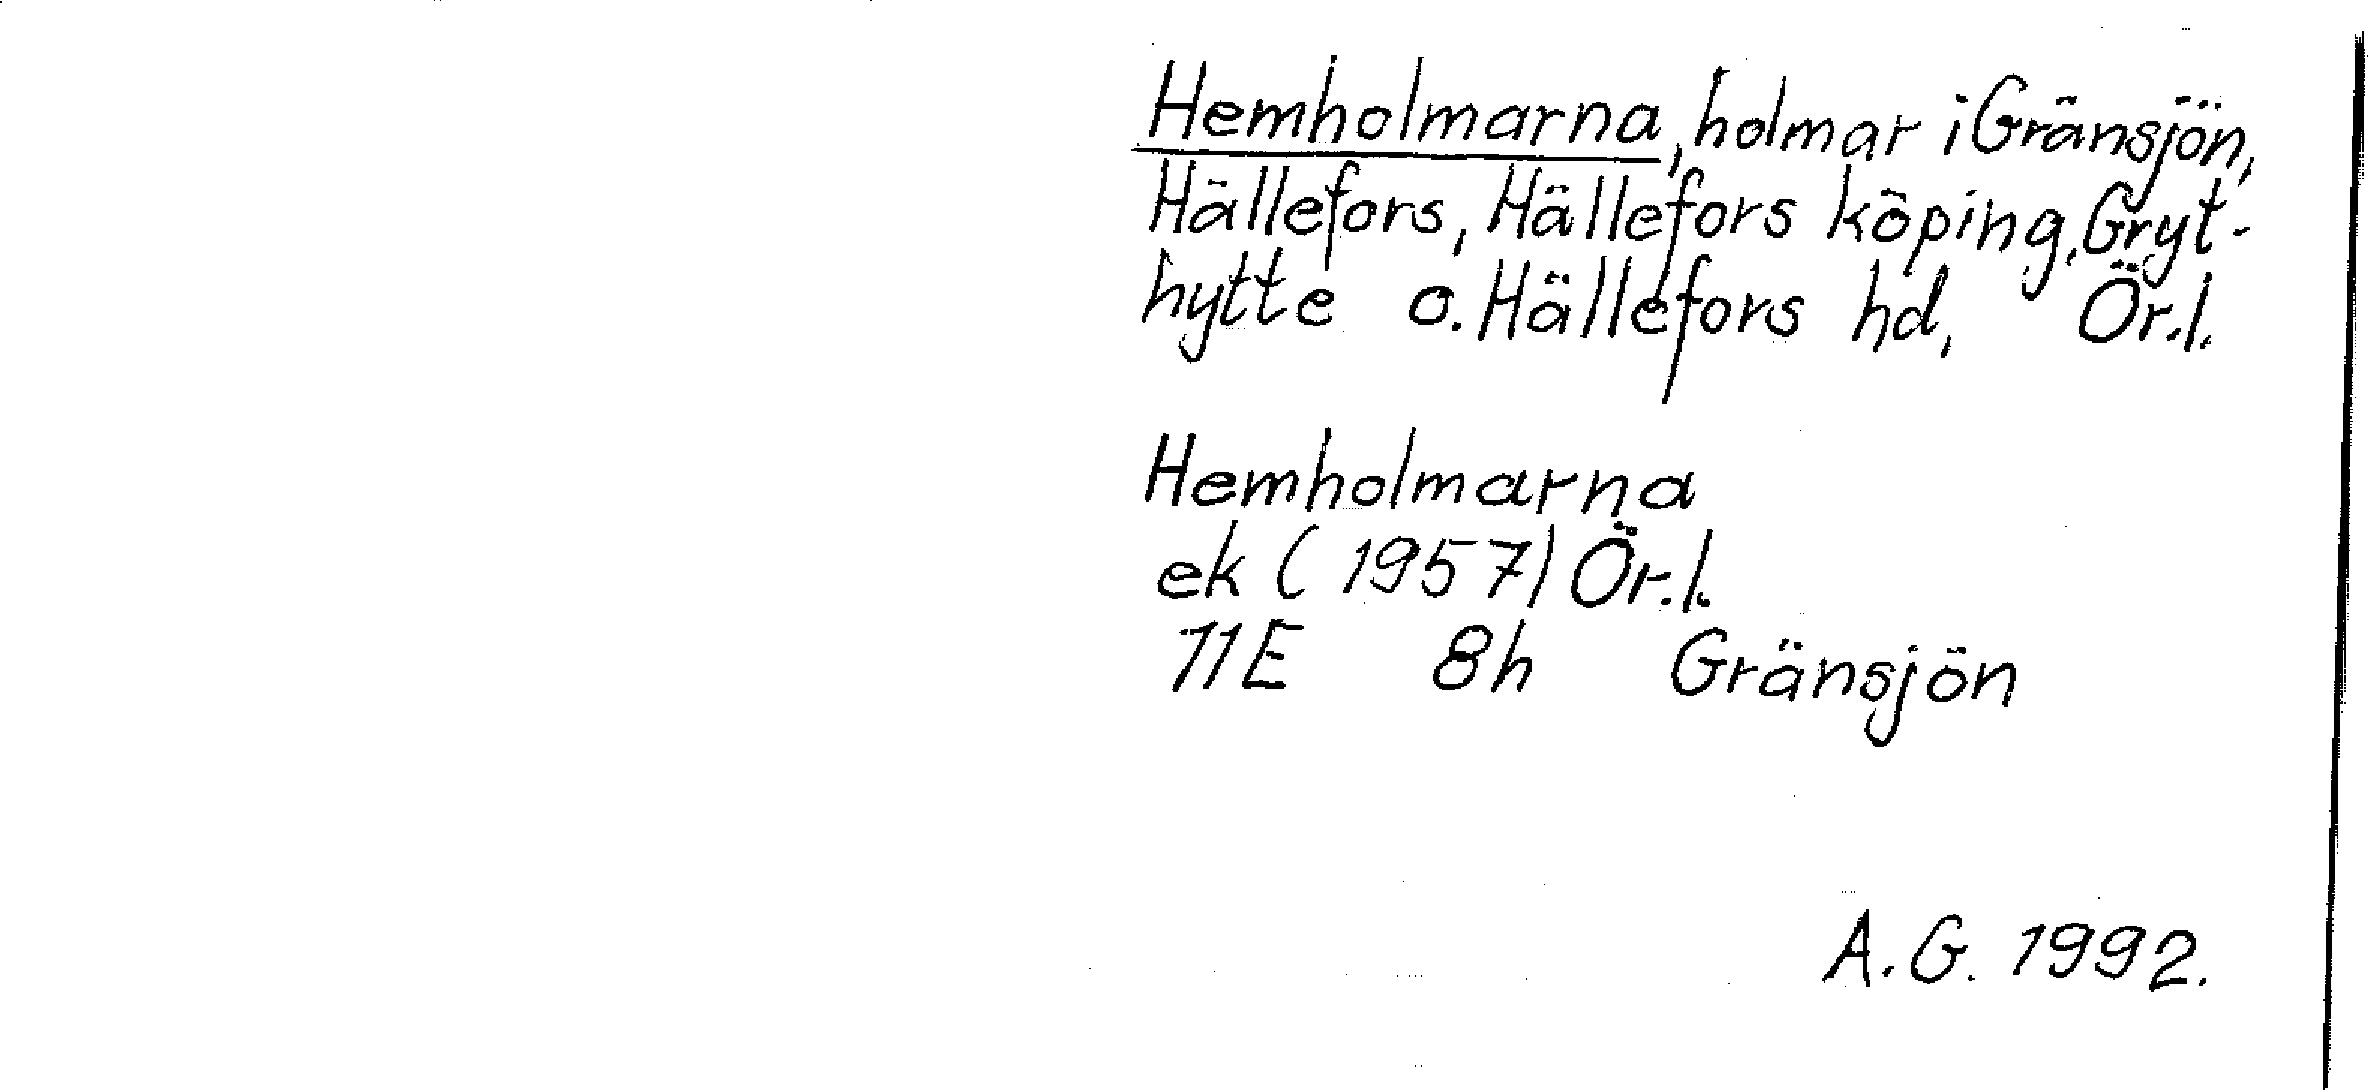 Hemholmarna, holmar i Gränsjön,
Hällefors, Hällefors köping, Gryt-
hytte o. Hällefors hd, Ör.l.
Hemholmarna
ek (1957) Ör.l.
11E 8h Gränsjön
A.G. 1992.